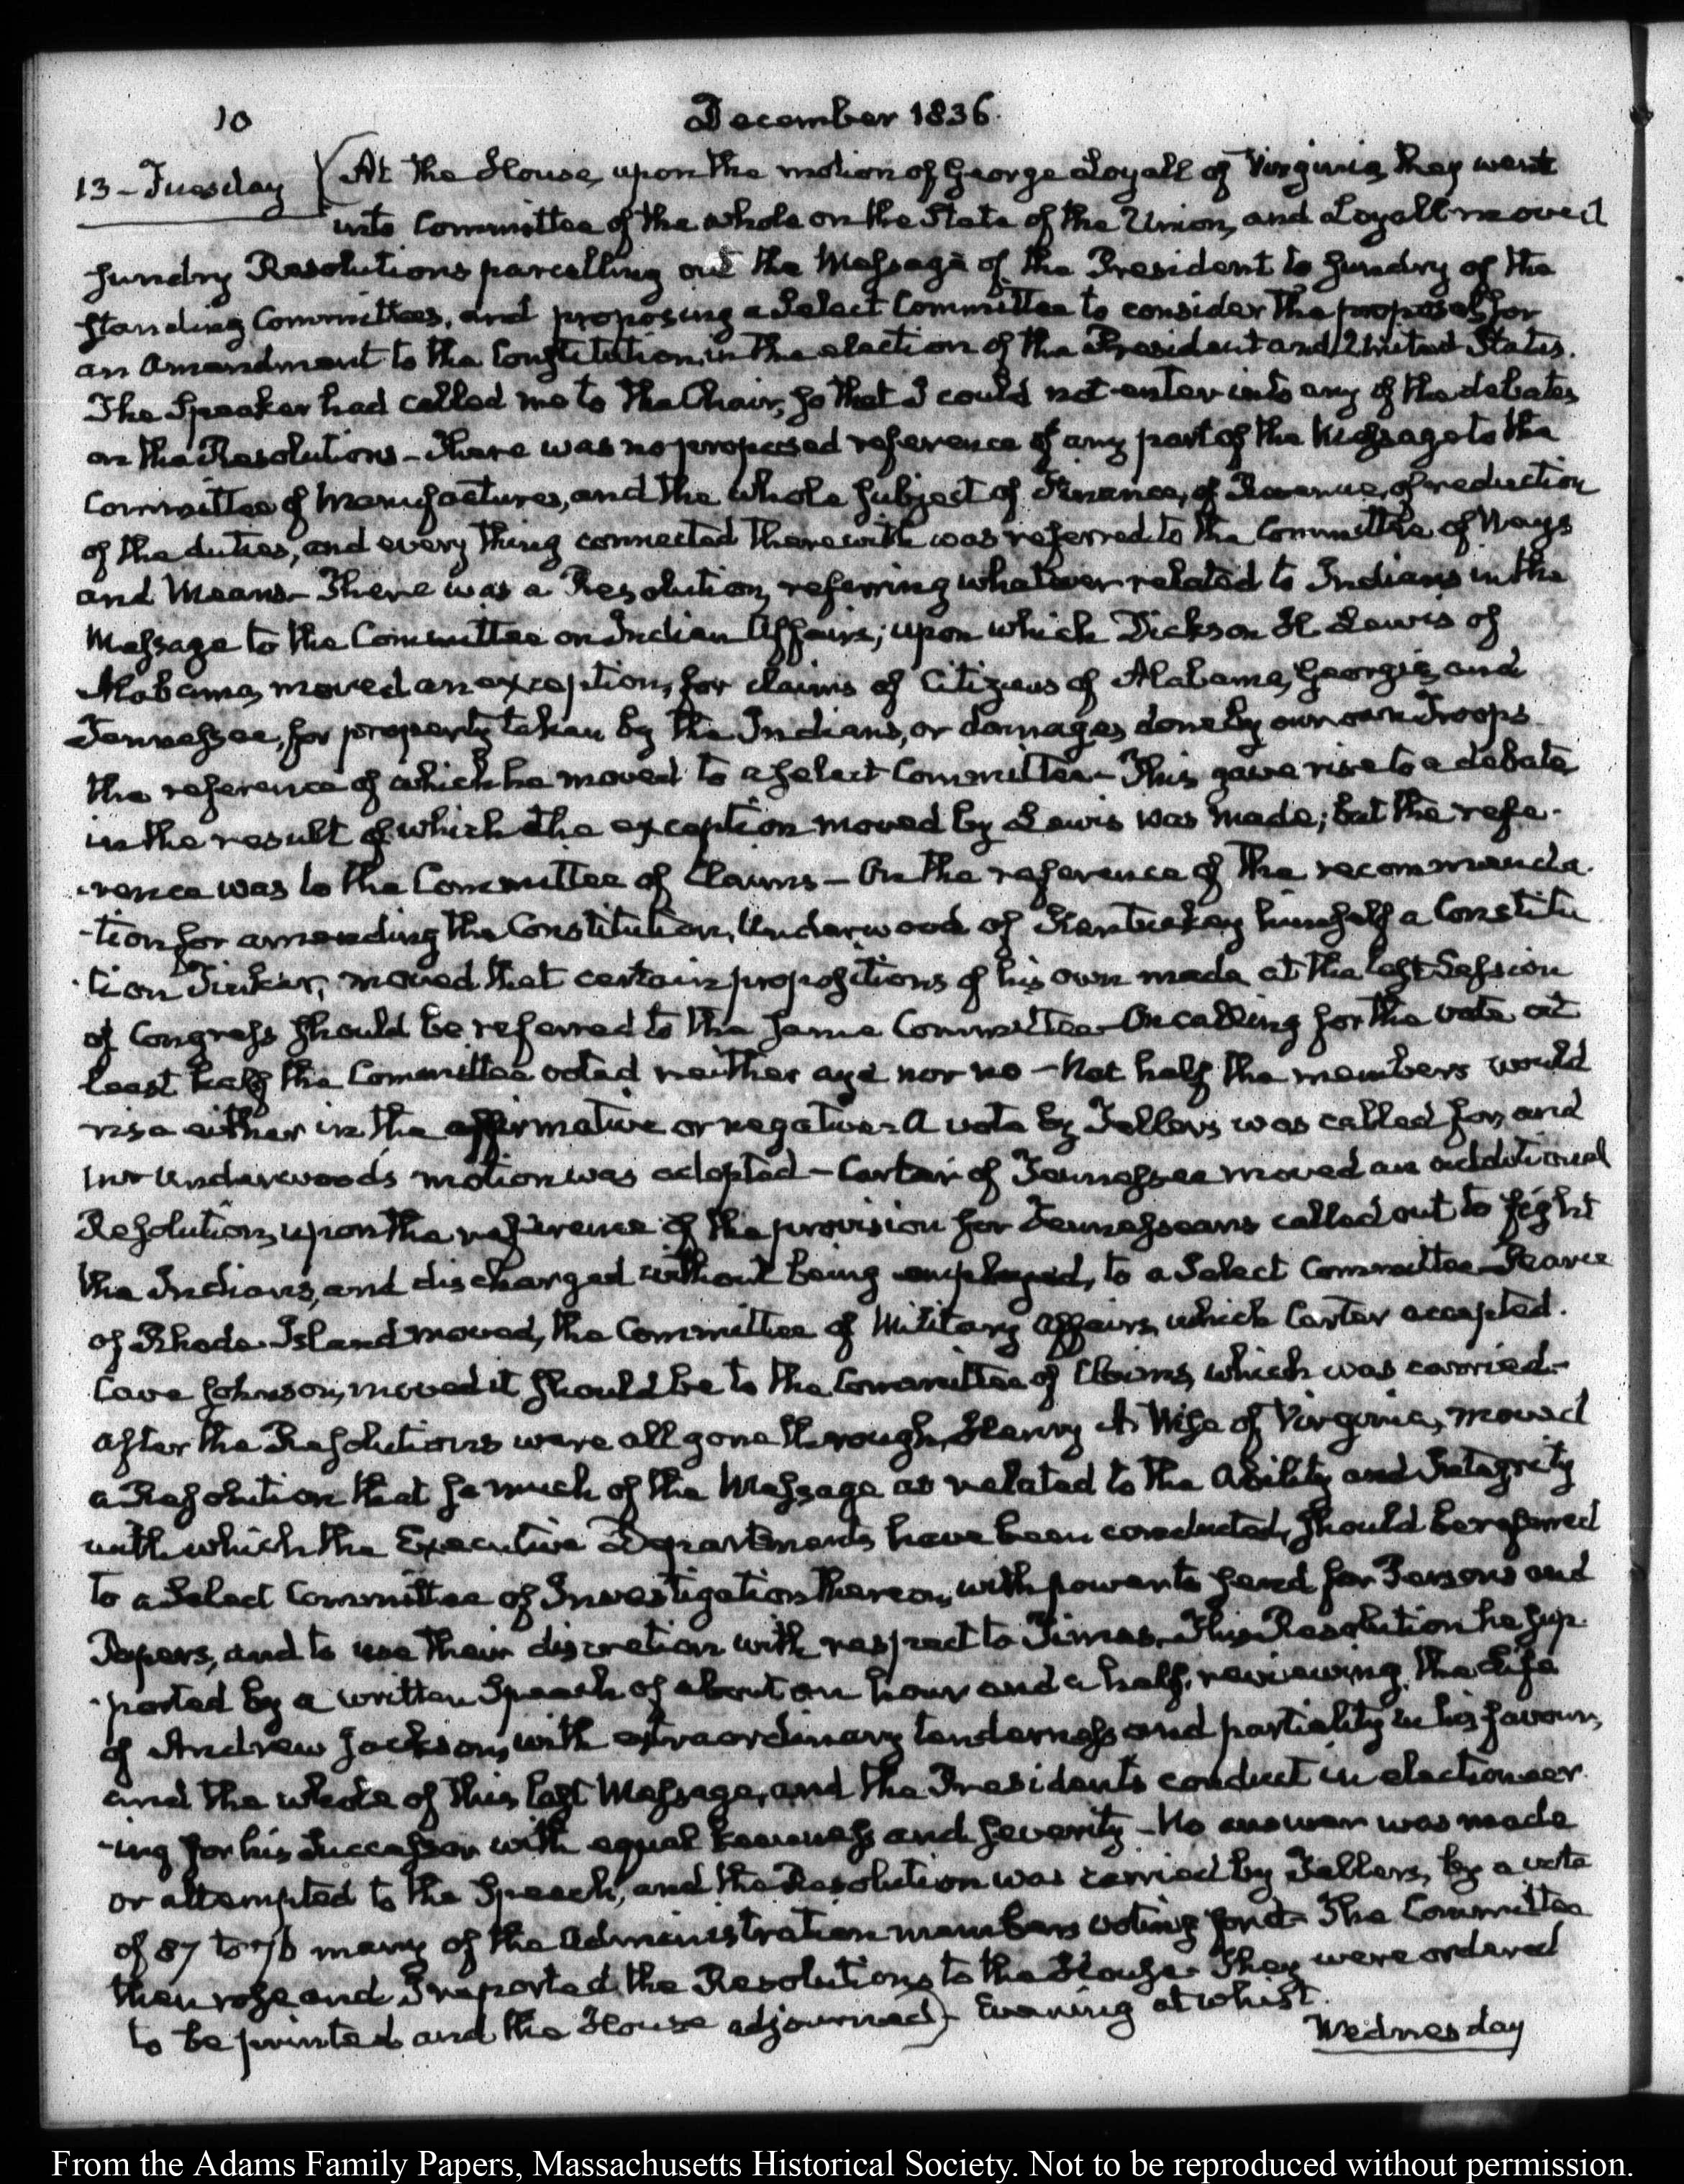 10
December 1836.
13 - Tuesday
(At the House, upon the motion of George Loyall of Virginia, they went
into Committee of the whole on the State of the Union, and Loyall moved
sundry Resolutions parcelling out the Message of the President to sundry of the
standing Committees, and proposing a Select Committee to consider the proposals for
an amendment to the Constitution, in the election of the President and United States.
The Speaker had called me to the Chair, so that I could not enter into any of the debates
on the Resolutions - There was no proposed reference of any part of the Message to the
Committee of Manufactures, and the whole subject of Finance, of Revenue, of reduction
of the duties, and every thing connected therewith was referred to the Committee of Ways
and Means - There was a Resolution, referring whatever related to Indians in the
Message to the Committee on Indian Affairs; upon which Dickson H. Lewis of
Alabama, moved an exception, for claims of Citizens of Alabama, Georgia, and
Tennessee, for property taken by the Indians, or damages done by our own Troops
the reference of which he moved to a select Committee - This gave rise to a debate
in the result of which the exception moved by Lewis was made; but the refe-
-rence was to the Committee of Claims - On the reference of the recommenda-
-tion for amending the Constitution, Underwood of Kentucky himself a Constitu
-tion Tinker, moved that certain propositions of his own made at the last Session
of Congress should be referred to the same Committee - On calling for the vote at
least half the Committee voted neither aye nor no - Not half the members would
rise either in the affirmative or negative - A vote by Tellers was called for, and
Mr Underwoods motion was adopted - Carter of Tennessee moved an additional
Resolution, upon the reference of the provision for Tennesseans called out to fight
the Indians, and discharged without being employed, to a Select Committee - Pearce
of Rhode-Island moved, the Committee of Military Affairs, which Carter accepted.
Cave Johnson, moved it should be to the Committee of Claims, which was carried -
after the Resolutions were all gone through, Henry A. Wise of Virginia, moved
a Resolution that so much of the Message as related to the Ability and Integrity
with which the Executive Departments have been conducted, should be referred
to a Select Committee of Investigation thereon, with power to send for Persons and
Papers, and to use their discretion with respect to Times. This Resolution he sup-
-ported by a written Speech of about an hour and a half, reviewing the Life
of Andrew Jackson, with extraordinary tenderness and partiality in his favour,
and the whole of this last Message, and the Presidents conduct in electioneer-
-ing for his Successor with equal keenness and severity - No answer was made
or attempted to the Speech, and the Resolution was carried by Tellers, by a vote
of 87 to 76 many of the Administration members voting for it - The Committee
then rose and I reported the Resolutions to the House. They were ordered
to be printed and the House adjourned) - Evening at whist.
Wednesday
From the Adams Family Papers, Massachusetts Historical Society. Not to be reproduced without permission.